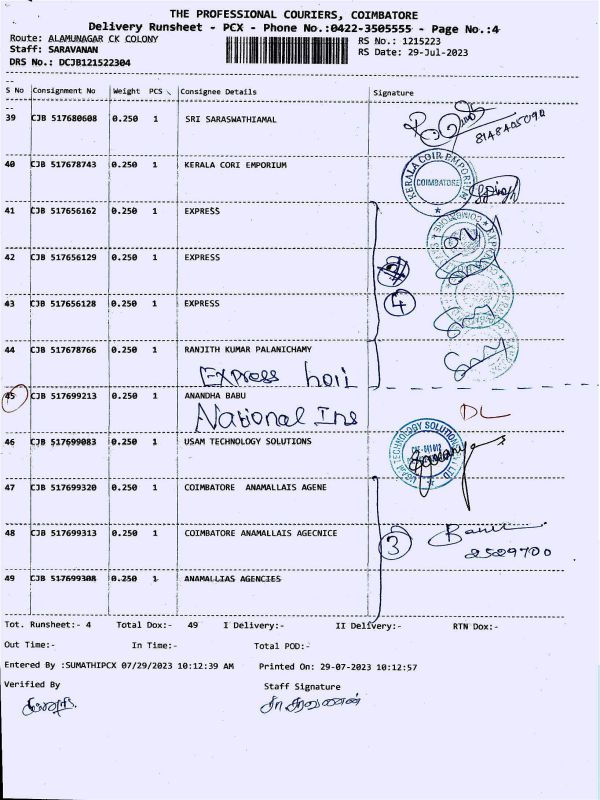 THE PROFESSIONAL COURIERS, COIMBATORE
Delivery Runsheet - PCX - Phone No.:0422-3505555 - Page No.:4
Route: ALAMUNAGAR CK COLONY
RS No.: 1215223
Staff: SARAVANAN
RS Date: 29-Jul-2023
DRS No.: DCJB121522304
S No Consignment No Weight PCS Consignee Details Signature
39 CJB 517680608 0.250 1 SRI SARASWATHIAMAL
40 CJB 517678743 0.250 1 KERALA CORI EMPORIUM
KERALA COIR EMPORIUM
COIMBATORE
41 CJB 517656162 0.250 1 EXPRESS
42 CJB 517656129 0.250 1 EXPRESS
4
43 CJB 517656128 0.250 1 EXPRESS
44 CJB 517678766 0.250 1 RANJITH KUMAR PALANICHAMY
Express
45 CJB 517699213 0.250 1 ANANDHA BABU
National Ins
DL
46 CJB 517699083 0.250 1 USAM TECHNOLOGY SOLUTIONS
47 CJB 517699320 0.250 1 COIMBATORE ANAMALLAIS AGENE
48 CJB 517699313 0.250 1 COIMBATORE ANAMALLAIS AGECNICE
3
2529700
49 CJB 517699308 0.250 1 ANAMALLIAS AGENCIES
Tot. Runsheet:- 4 Total Dox:- 49 I Delivery:- II Delivery:- RTN Dox:-
Out Time:- In Time:- Total POD:-
Entered By :SUMATHIPCX 07/29/2023 10:12:39 AM Printed On: 29-07-2023 10:12:57
Verified By Staff Signature
சரவணன்